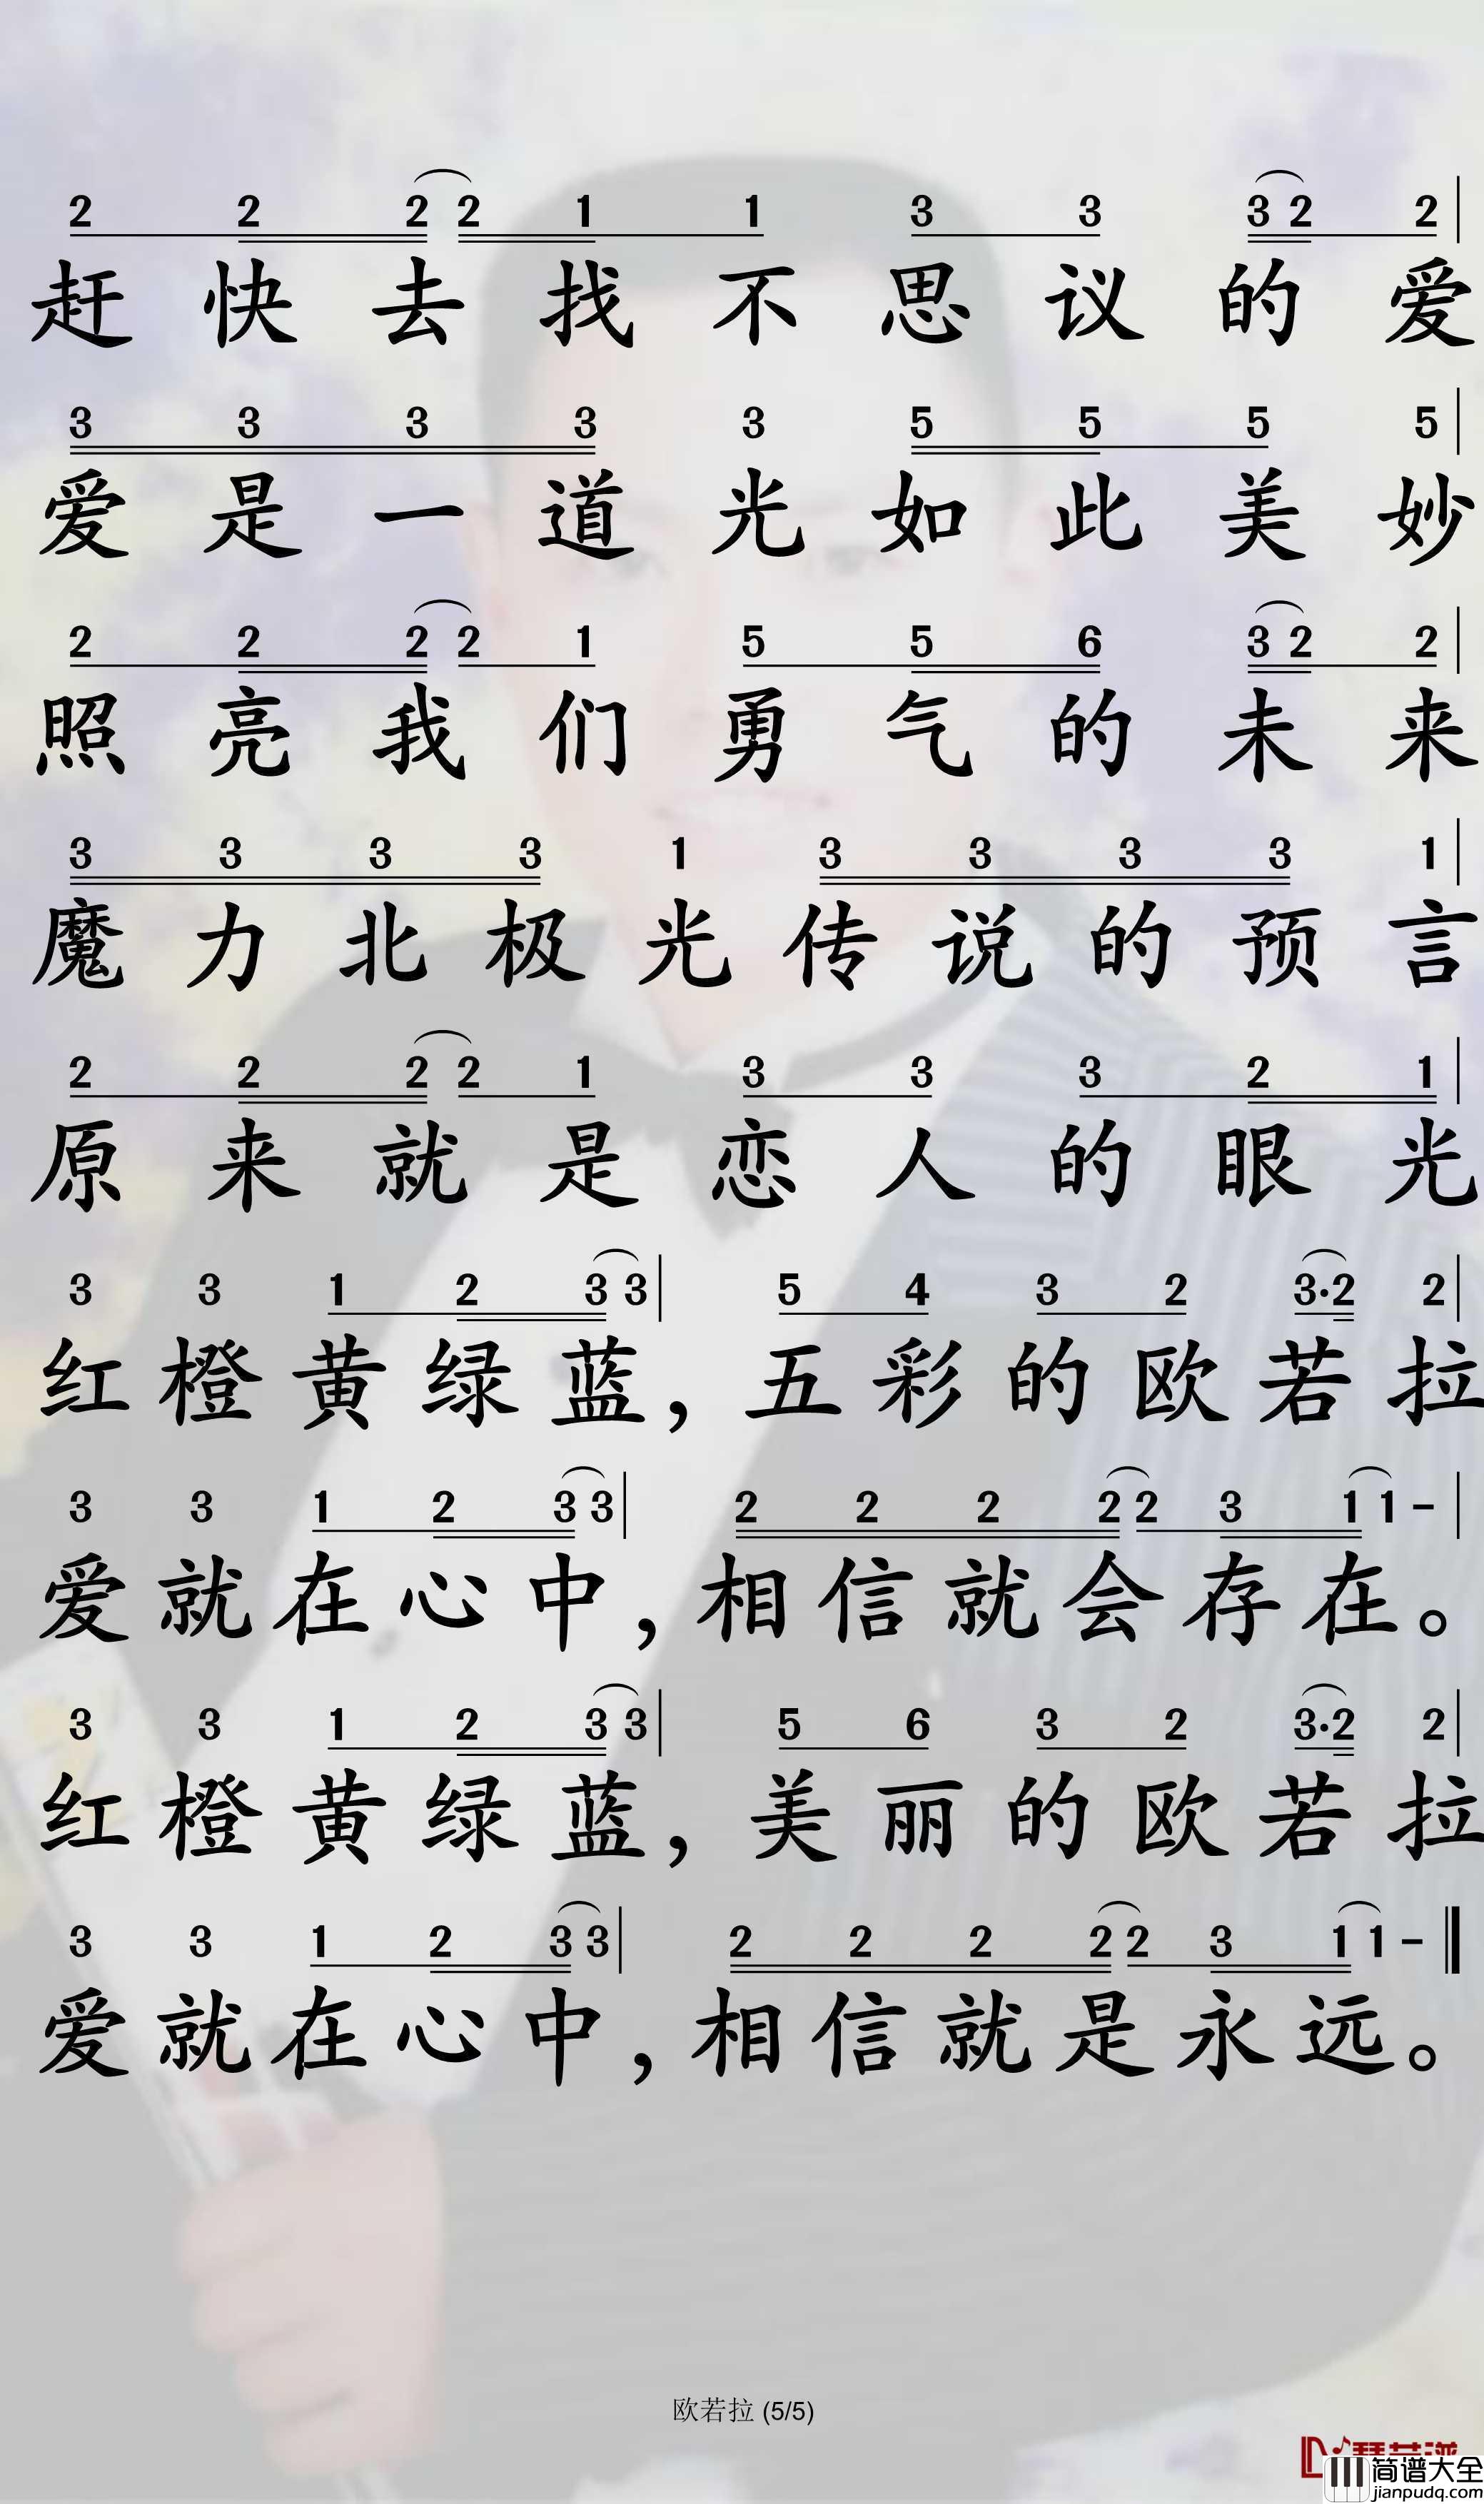 2 2 2 2 1 1 3 3 3 2 2
赶快去找不思议的爱
3 3 3 3 3 5 5 5 5
爱是一道光如此美妙
2 2 2 2 1 5 5 6 3 2 2
照亮我们勇气的未来
3 3 3 3 1 3 3 3 3 1
魔力北极光传说的预言
2 2 2 2 1 3 3 3 2 1
原来就是恋人的眼光
3 3 1 2 3 3 5 4 3 2 3·2 2
红橙黄绿蓝，五彩的欧若拉
3 3 1 2 3 3 2 2 2 2 2 3 1 1 -
爱就在心中，相信就会存在。
3 3 1 2 3 3 5 6 3 2 3·2 2
红橙黄绿蓝，美丽的欧若拉
3 3 1 2 3 3 2 2 2 2 2 3 1 1 -
爱就在心中，相信就是永远。
欧若拉 (5/5)
简谱大全
jianpudq.com